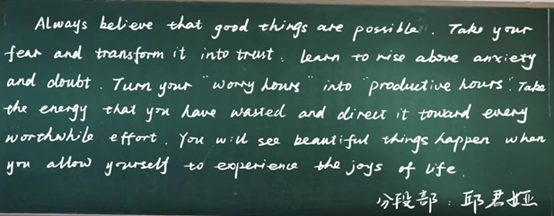 Always believe that good things are possible. Take your
fear and transform it into trust. Learn to rise above anxiety
and doubt. Turn your "worry hours" into "productive hours". Take
the energy that you have wasted and direct it toward every
worthwhile effort. You will see beautiful things happen when
you allow yourself to experience the joys of life.
分段部：邱君娅